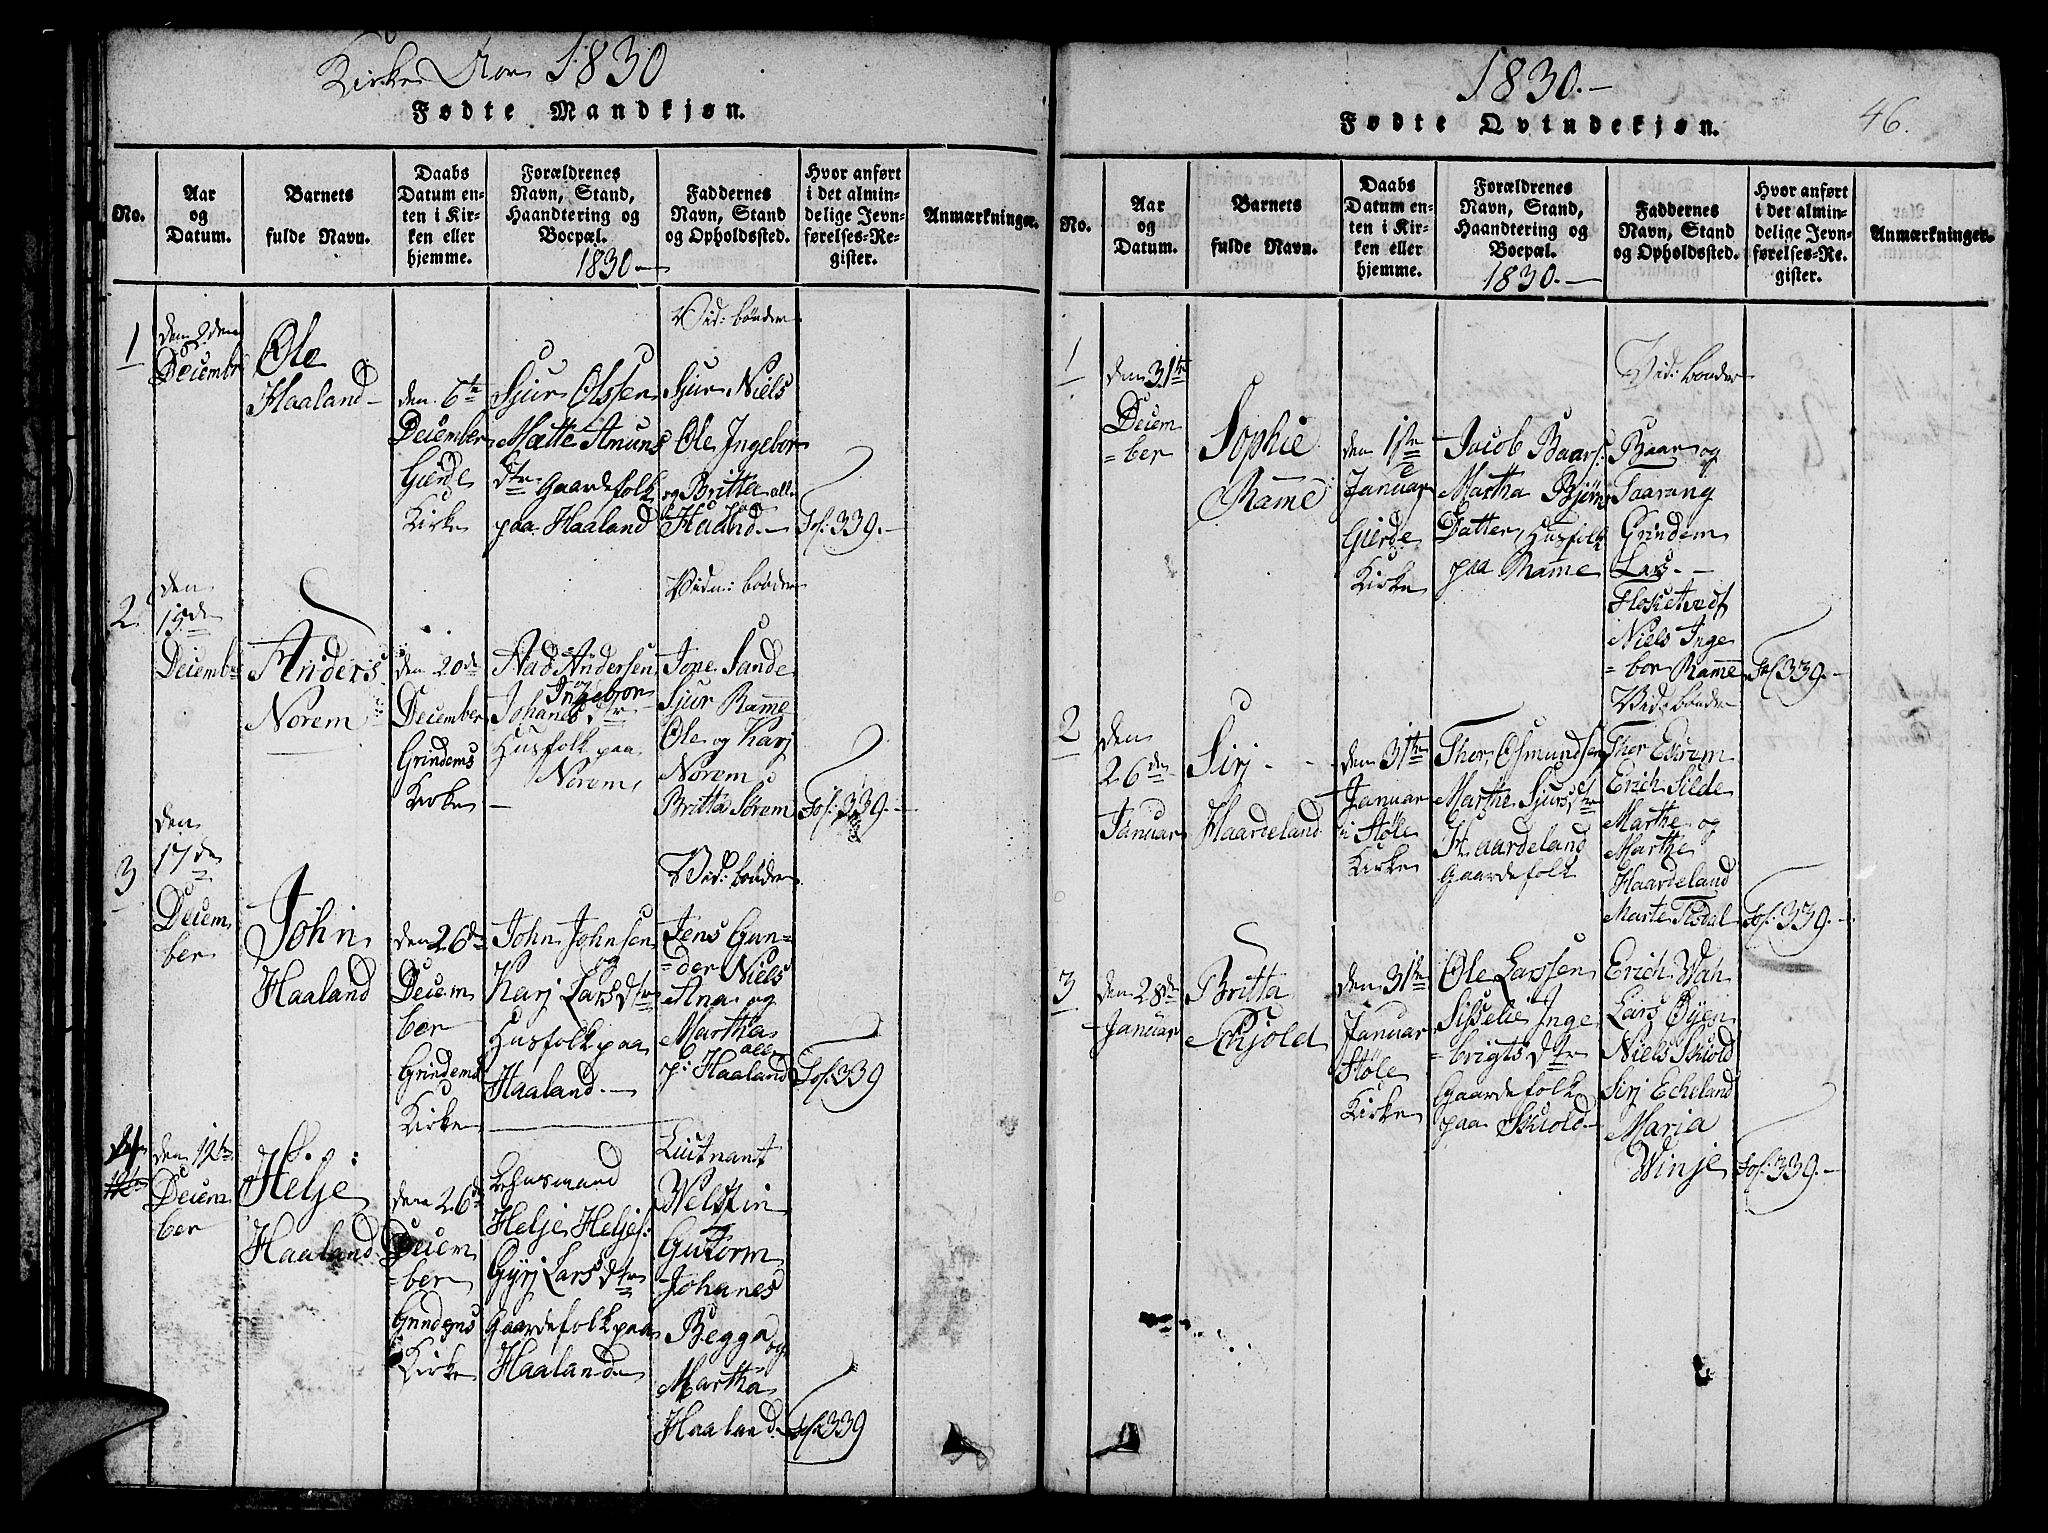 Kirke Aar 1830
Fødte Mandkjøn.
No.
Aar
og
Datum.
Barnets
fulde Navn.
Daabs
Datum en-
ten i Kir-
ken eller
hjemme.
Forældrenes
Navn, Stand,
Haandtering og
Boepæl.
1830.—
Faddernes
Navn, Stand
og Opholdssted.
Hvor anført
i det almin-
delige Jevn-
førelses-Re-
gister.
Anmærkninger.
1
den 2den
Decembr
Ole
Haaland
den 6te
December
Gierde
Kirke
Sjur Olssen
Mette Amuns
dtr Gaardefolk
paa Haaland
Vid: bönder
Sjur Niels
Ole Ingebor
og Britta alle
Haaland.—
Fol: 339.—
2
den
19de
Decembr
Anders
Norem
den 20de
December
Grindems
Kirke
Aad Andersen
og Ingebor
Johanes dtr
Husfolk paa
Norem
Vidn: bönder
Jone Sande
Sjur Rame
Ole og Karj
Norem
Britta Sörem
Fol: 339.—
3
den
17de
Decem
ber
John
Haaland
den 26de
Decem
ber
Grindems
Kirke
John Johnsen
og
Karj Lars dtr
Husfolk paa
Haaland.—
Vid: bönder
Jens Gun=
=der Niels
Ana og
Martha
alle
p: Haaland
Fol: 339
4
den 12te
Decem
ber
Helje
Haaland
den 26de
Decem
=ber
Grindems
Kirke
Lehnsmand
Helje Heljes:
Gyrj Lars dtr
Gaardefolk paa
Haaland
Liutnant
Welstin
Gutorm
Johanes
Begga og
Martha
Haaland
Fol: 339
1830.—
Fødte Qvindekjøn.
46.
No.
Aar
og
Datum.
Barnets
fulde Navn.
Daabs
Datum en-
ten i Kir-
ken eller
hjemme.
Forældrenes
Navn, Stand,
Haandtering og
Boepæl.
1830.—
Faddernes
Navn, Stand
og Opholdssted.
Hvor anført
i det almin-
delige Jevn-
førelses-Re-
gister.
Anmærkninger.
1
den 31te
Decem
=ber
Sophie
Rame
den 1ste
Januar
Gierde
Kirke
Jacob Baars:
Martha Björns
Datter, Husfolk
paa Rame
Vid: bönder
Baar og
Taarang
Grindem
Lars —
Niels Inge
=bor Rame
Fol: 339.—
2
den
26de
Januar
Sirj
Haardeland
den 31te
Januar
i Støle
Kirke
Thor Osmundsen
Marthe Sjurs dtr
Haardeland
Gaardefolk
Vid: bönder
Thor Ekrem
Erich Silde
Marthe og
Marthe
Haardeland
Marte Tesdal
Fol: 339.—
3
den 28de
Januar
Britta
Schjold
den 31te
Januar
Støle
Kirke
Ole Larssen
Sisselie Inge
=brigts dtr
Gaardefolk
paa Skiold
Erich Wah
Lars Øyen
Niels Skiold
Sirj Echeland
Maria
Winje
Fol: 339.—